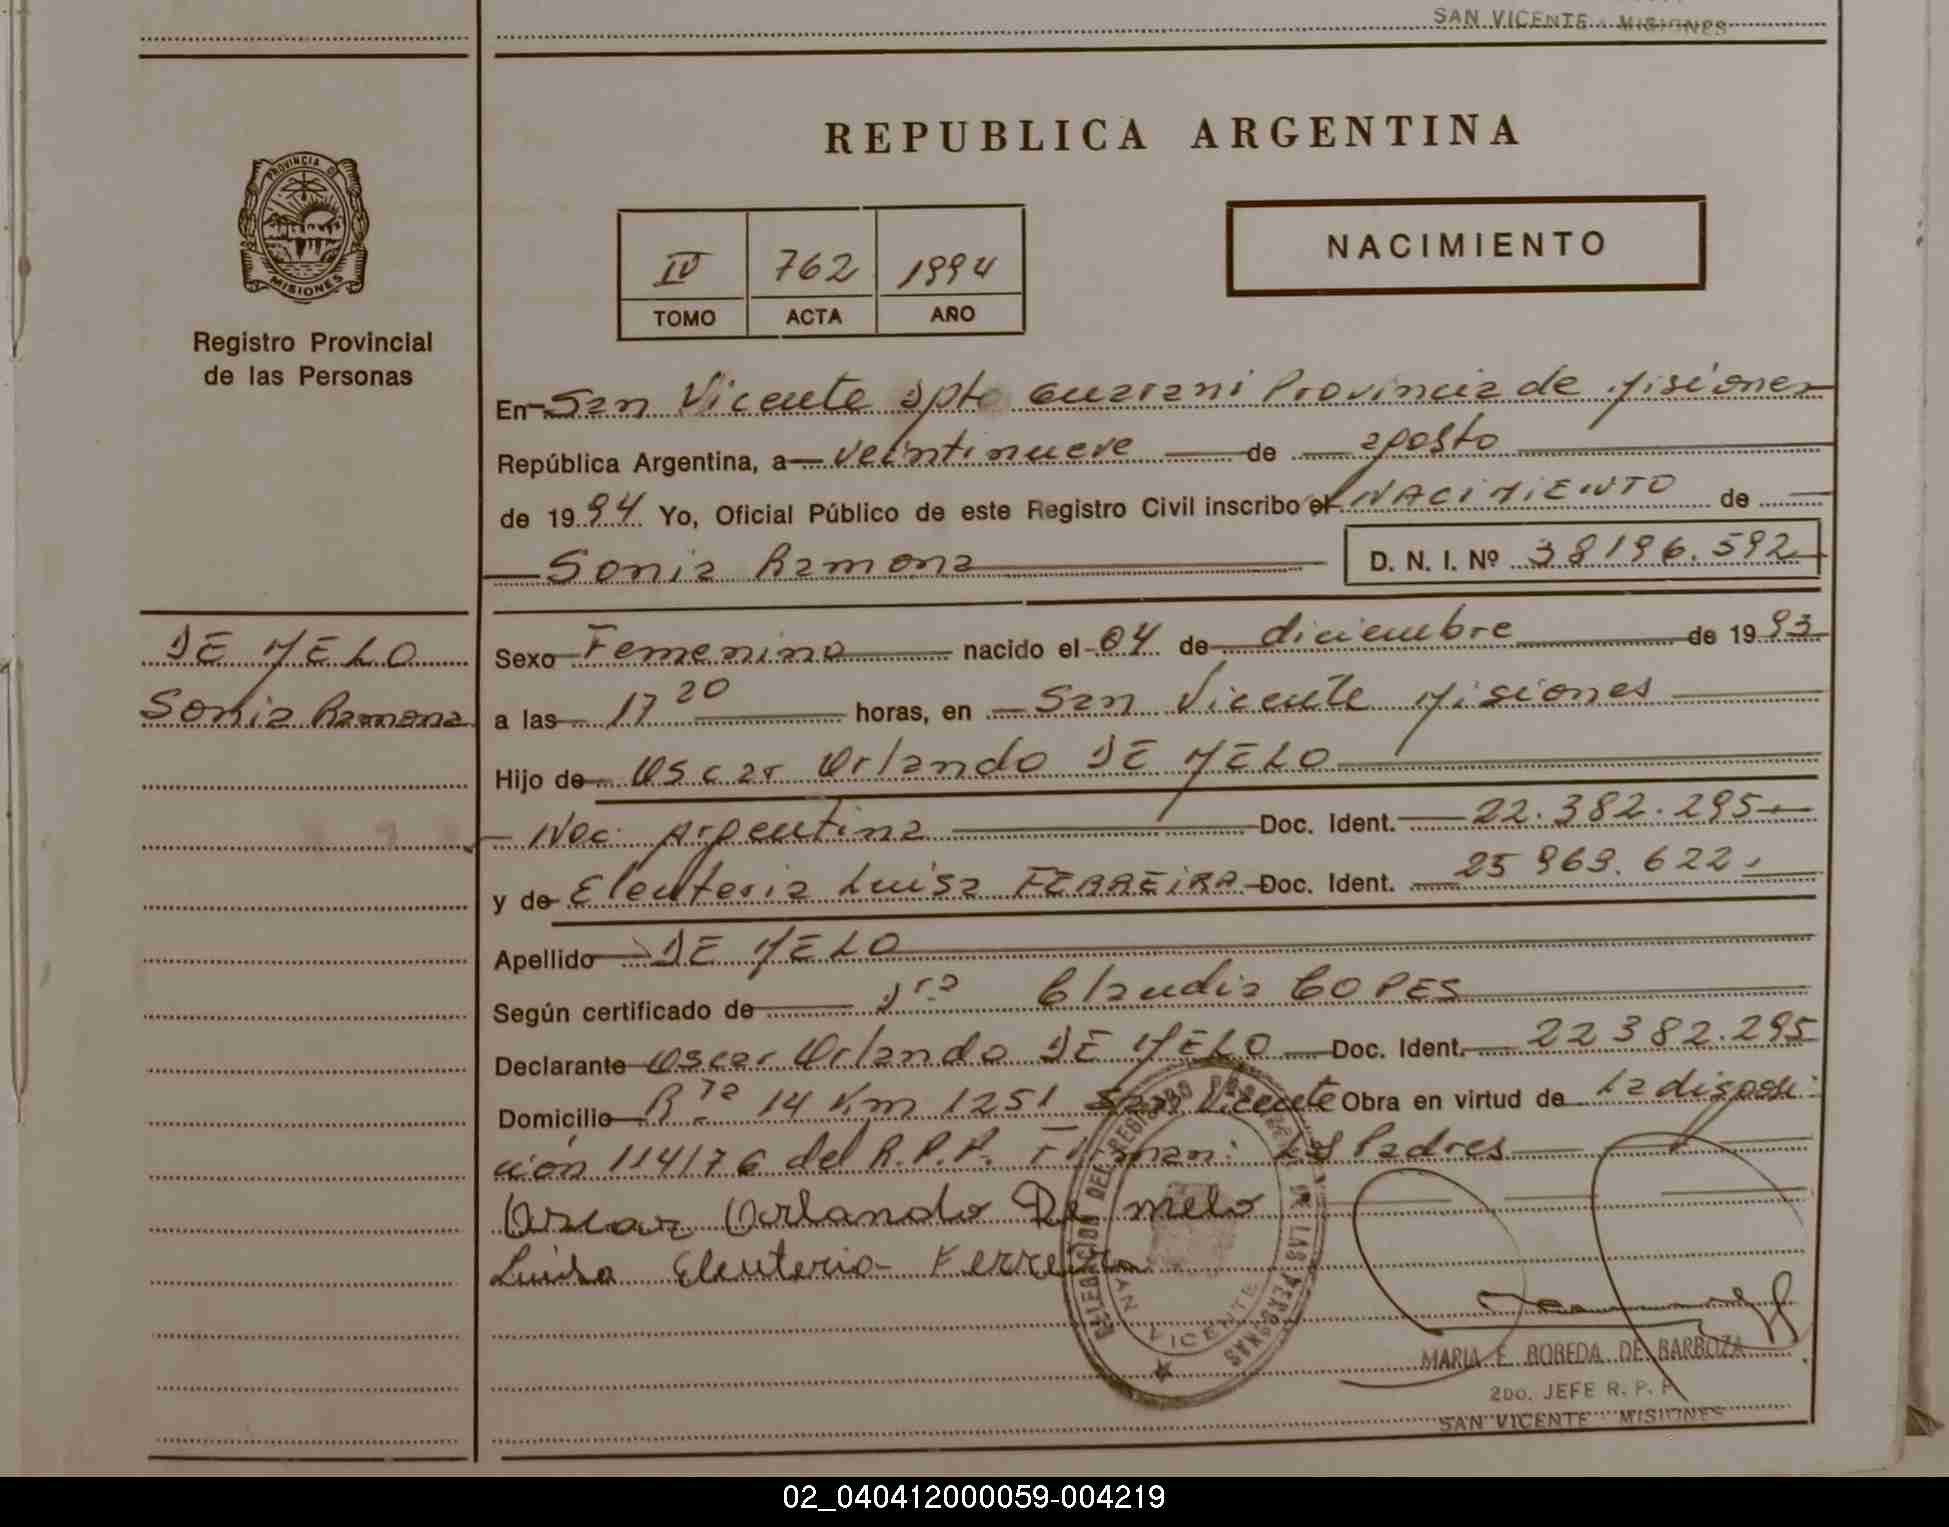 SAN VICENTE - MISIONES
REPUBLICA ARGENTINA
PROVINCIA DE
MISIONES
Registro Provincial
de las Personas
IV 762 1994
TOMO ACTA AÑO
NACIMIENTO
En San Vicente Dpto Guarani Provincia de Misiones
República Argentina, a veintinueve de agosto
de 1994 Yo, Oficial Público de este Registro Civil inscribo el NACIMIENTO de
Sonia Ramona D. N. I. Nº 38196.592
DE MELO
Sonia Ramona
Sexo Femenino nacido el 04 de diciembre de 1993
a las 17 20 horas, en San Vicente Misiones
Hijo de Oscar Orlando DE MELO
Nac. Argentina Doc. Ident. 22.382.295
y de Eleuteria Luisa FERREIRA Doc. Ident. 25 963.622
Apellido DE MELO
Según certificado de Dra Claudia COPES
Declarante Oscar Orlando DE MELO Doc. Ident. 22382.295
Domicilio Rta 14 Km 1251 San Vicente Obra en virtud de la disposi
ción 114/76 del R.P.P. Firman: Los Padres
Oscar Orlando De melo
Luisa Eleuteria Ferreira
DELEGACION DEL REGISTRO DE LAS PERSONAS
SAN VICENTE
MARIA E. BOBEDA DE BARBOZA
2DO. JEFE R. P. P.
SAN VICENTE MISIONES
02_040412000059-004219